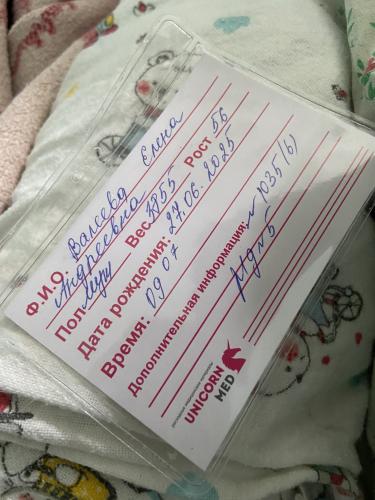 Ф.И.О. Валеева Елена
Андреевна
Пол: муж Вес 3855 Рост 56
Дата рождения: 27.06.2025
Время: 09 07
Дополнительная информация: № 1035 (6)
UNICORN
MED